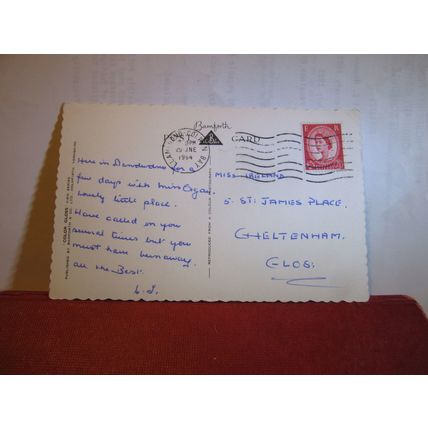 Bamforth
CARD
LLANDUDNO-COLWYN BAY
PM
JNE
1964
Here in Llandudno for a
few days with Miss Organ.
Lovely little place.
Have called on you
several times but you
must have been away.
all the Best.
MISS
5. ST. JAMES PLACE,
CHELTENHAM.
GLOS.
"COLOR GLOSS" VIEW SERIES
PUBLISHED BY BAMFORTH & CO. LTD. HOLMFIRTH, YORKSHIRE
REPRODUCED FROM A COLOUR